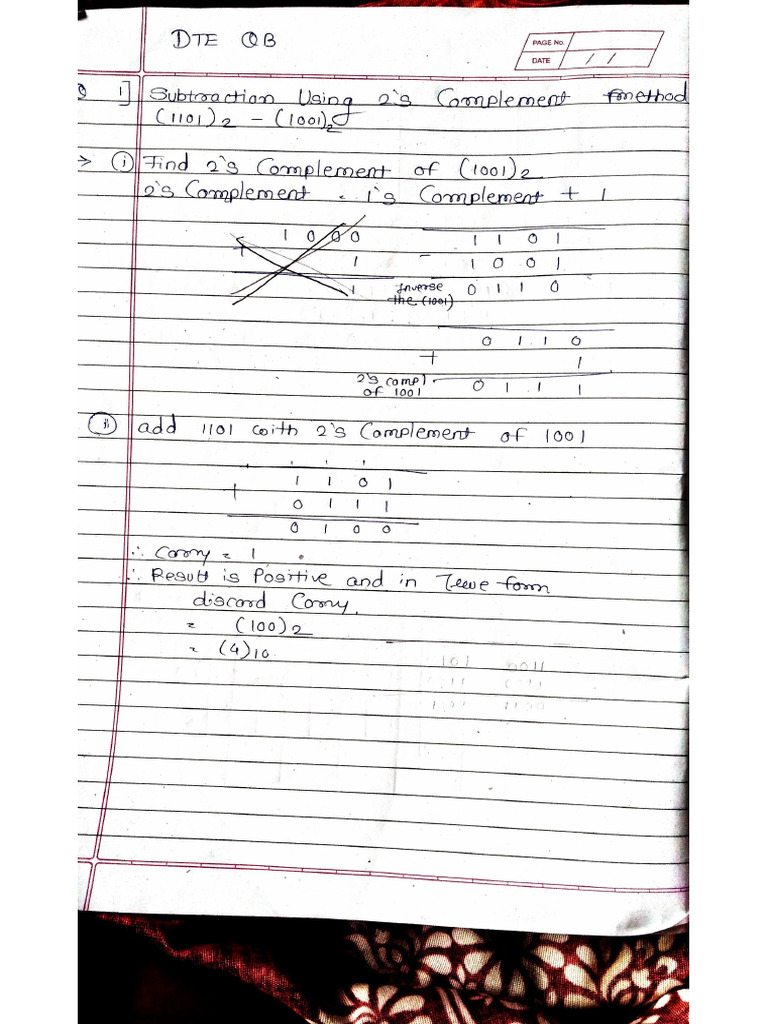 DTE QB
PAGE No.
DATE / /
Q 1] Subtraction Using 2's Complement method
(1101)2 - (1001)2
→ (i) Find 2's Complement of (1001)2
2's Complement = 1's Complement + 1
1 0 0 0
+ 1
1
1 1 0 1
- 1 0 0 1
Inverse the (1001) 0 1 1 0
0 1 1 0
+ 1
2's compl of 1001 0 1 1 1
(ii) add 1101 with 2's Complement of 1001
1 1 1
1 1 0 1
+ 0 1 1 1
0 1 0 0
∴ Carry = 1
∴ Result is Positive and in True form
discard Carry.
= (100)2
= (4)10